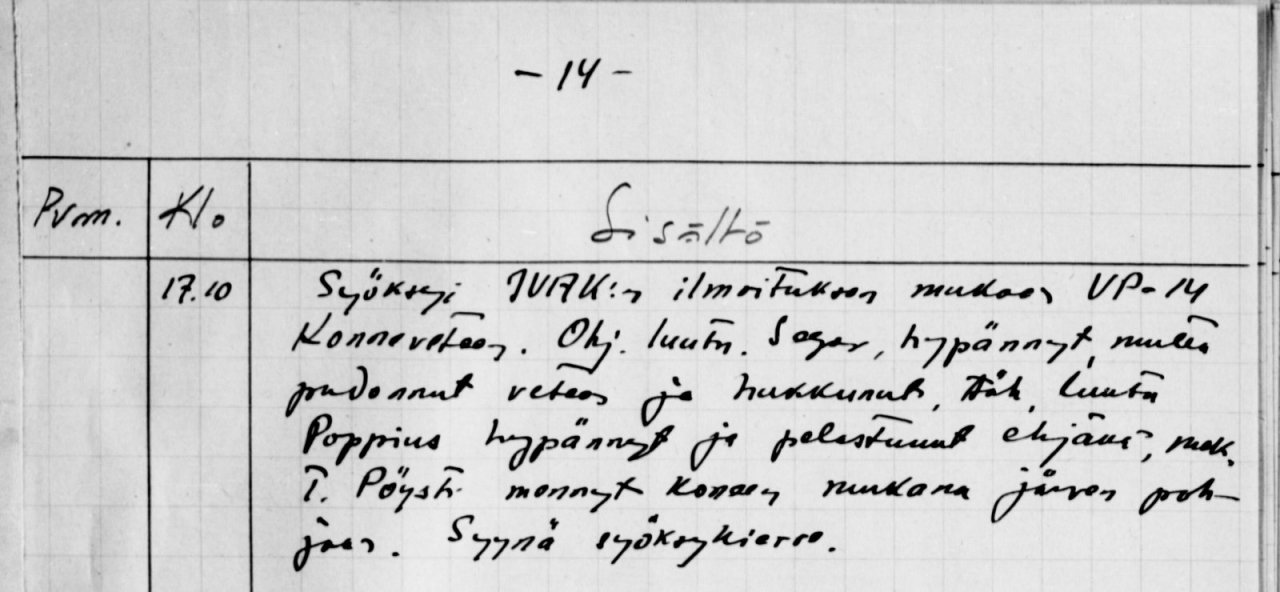 - 14 -
Pvm. Klo Sisältö
17.10 Syöksyi IVAK:n ilmoituksen mukaan VP-14
Konneveteen. Ohj. luutn. Seger, hypännyt, mutta
pudonnut veteen ja hukkunut, täh. luutn
Poppius hypännyt ja pelastunut ehjänä, mek.
T. Pöysti mennyt koneen mukana järven poh-
jaan. Syynä syöksykierre.